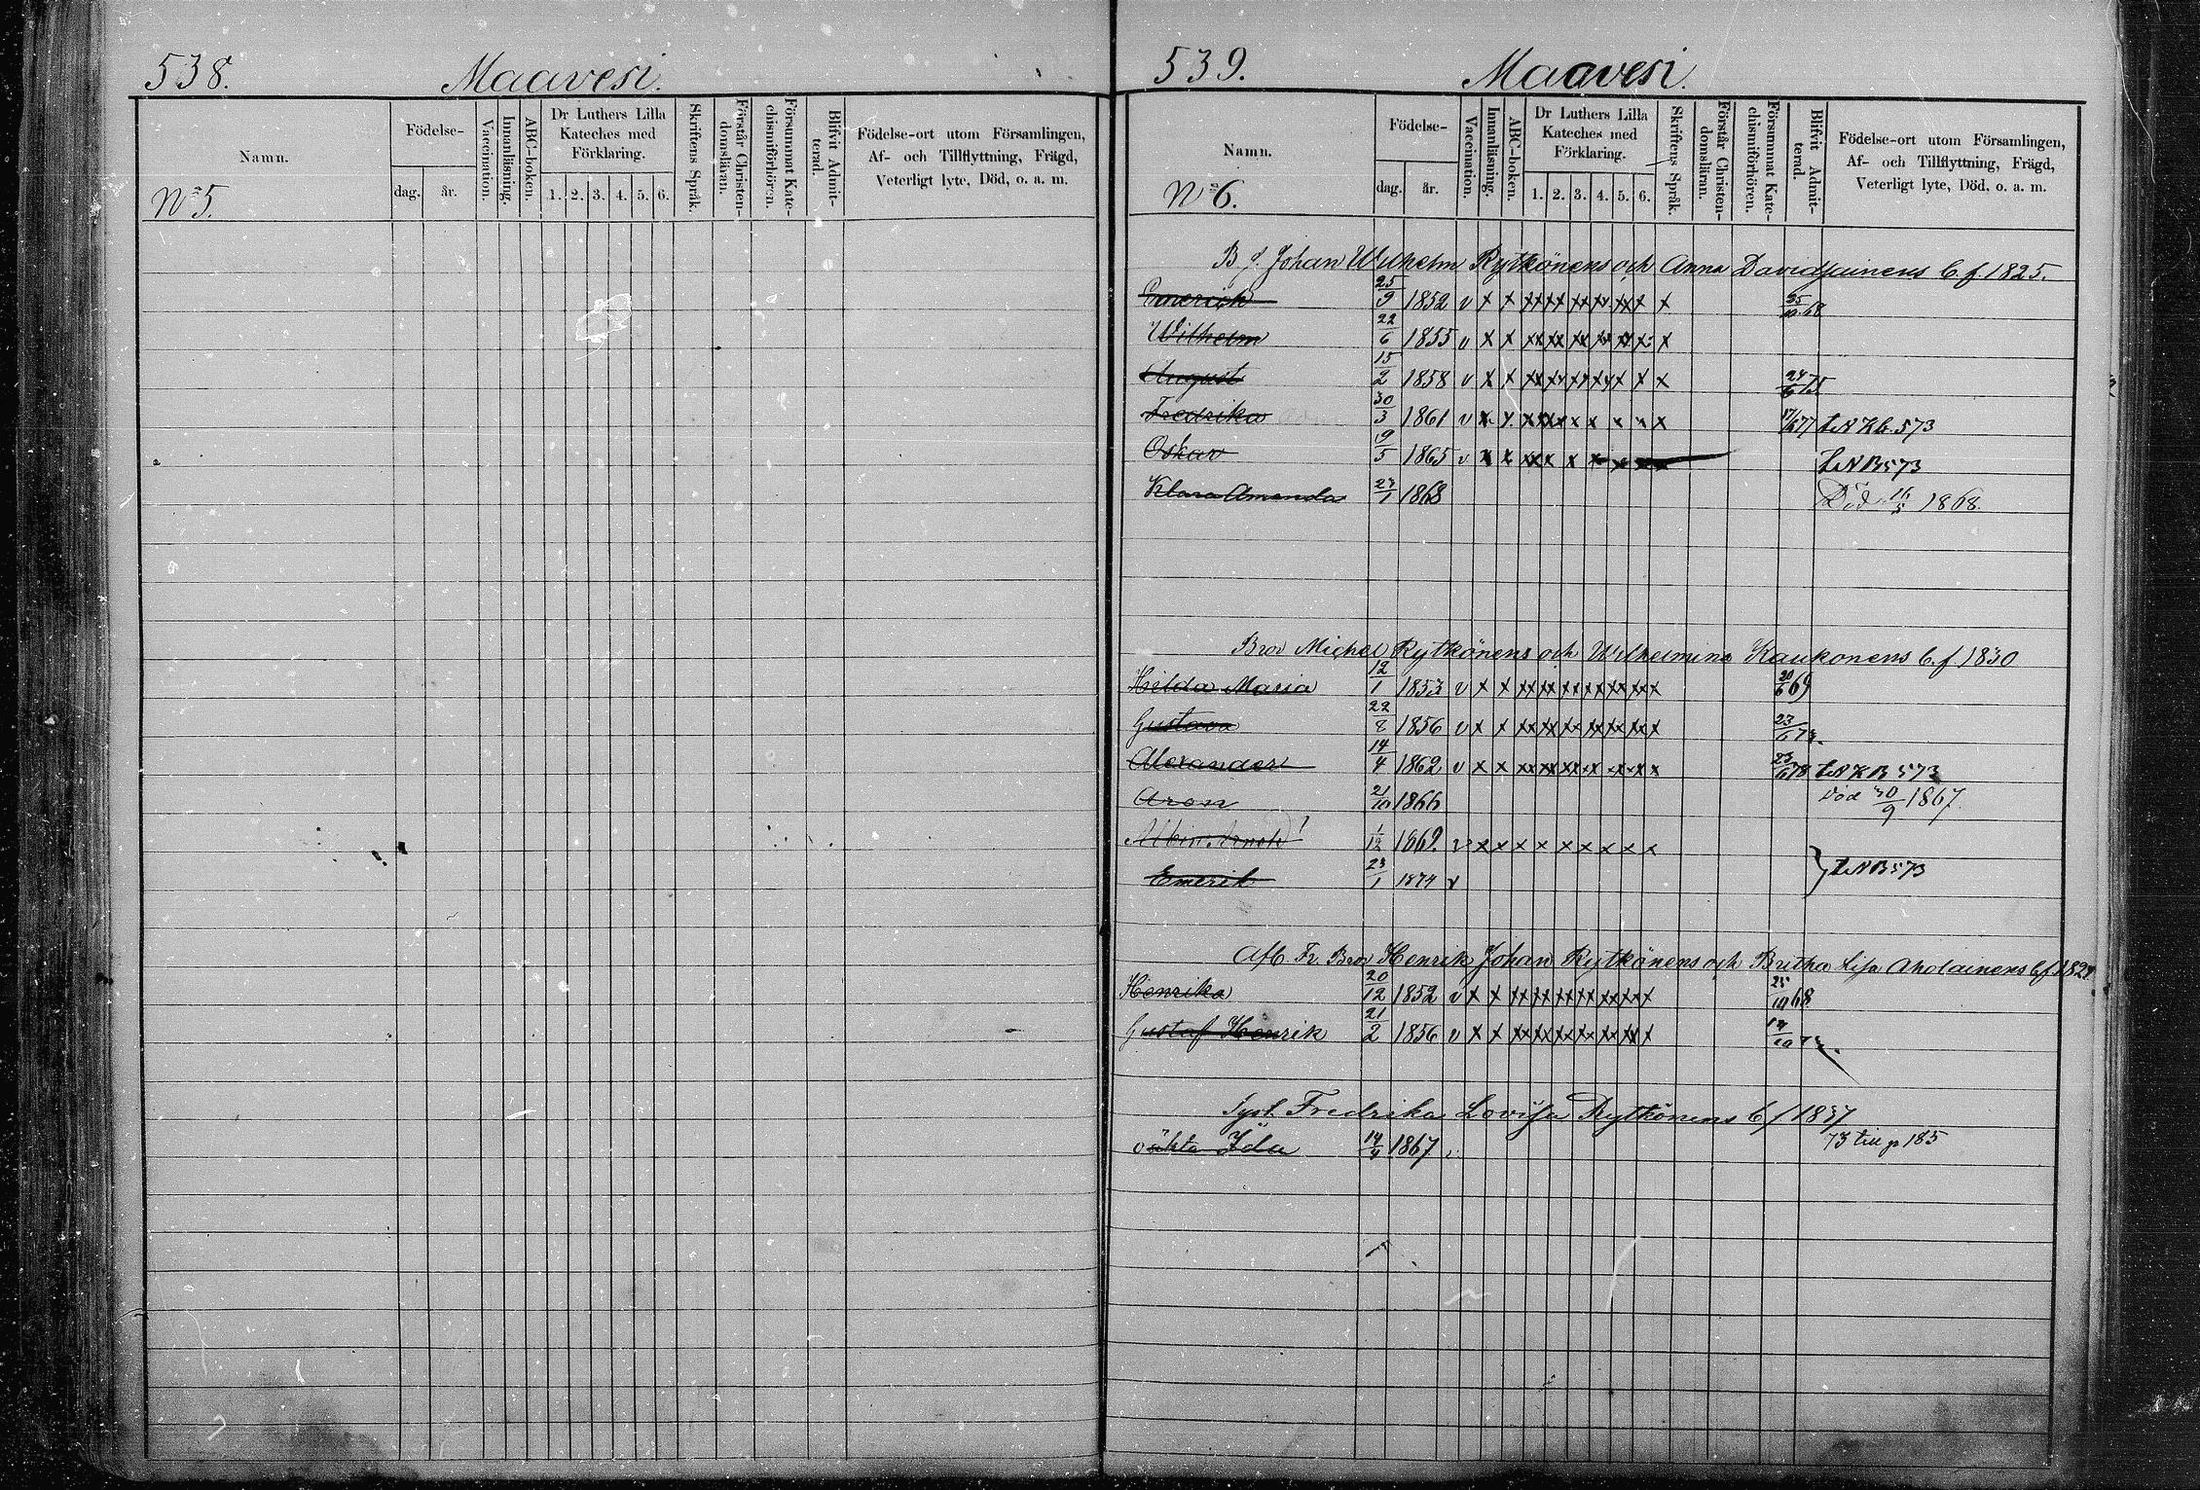 538. Maavesi.
Namn. Födelse- dag. år. Vaccination. Innanläsning. ABC-boken. Dr Luthers Lilla Kateches med Förklaring. 1. 2. 3. 4. 5. 6. Skriftens Språk. Förstår Christen-domsläran. Försummat Kate-chismiförhören. Blifvit Admit-terad. Födelse-ort utom Församlingen, Af- och Tillflyttning, Frägd, Veterligt lyte, Död, o. a. m.
No 5.
539. Maavesi.
Namn. Födelse- dag. år. Vaccination. Innanläsning. ABC-boken. Dr Luthers Lilla Kateches med Förklaring. 1. 2. 3. 4. 5. 6. Skriftens Språk. Förstår Christen-domsläran. Försummat Kate-chismiförhören. Blifvit Admit-terad. Födelse-ort utom Församlingen, Af- och Tillflyttning, Frägd, Veterligt lyte, Död, o. a. m.
No 6.
B f. Johan Wilhelm Rytkönens och Anna Davidsainens b. f. 1825.
Emerick 25/9 1852 v x x xx xx xx xx xx x x 25/10 68
Wilhelm 22/6 1855 v x x xx xx xx xx xx x x
August 15/2 1858 v x x xx xx xx xx x x x 24/6 75
Fredrika 30/3 1861 v x x x xx x x x x x x 17/6 77 L.N.K.b. 573
Oskar 19/5 1865 v x x xx x x x x L N B 573
Klara Amanda 27/1 1868 Död 16/5 1868.
Bror Michel Rytkönens och Wilhelmina Kaukonens b. f 1830
Hilda Maria 12/1 1853 v x x xx xx xx xx xx xx x 20/6 69
Gustava 22/8 1856 v x x xx xx xx xx xx xx x 23/6 73.
Alexander 14/4 1862 v x x xx xx xx x x x x x 23/6 78 L N K B 573
Aron 21/10 1866 Död 30/9 1867.
Albin 1/12 1869. v x x x x x x x x x
Emerik 23/1 1874 v } L N B 573
Afl. Fr. Bror Henrik Johan Rytkönens och Britha Lisa Aholainens b. f. 1824
Henrika 20/12 1852 v x x xx xx xx xx xx xx x 25/10 68
Gustaf Henrik 21/2 1856 v x x xx xx xx xx xx xx x 19/10 73.
Syst. Fredrika Lovisa Rytkönens b f 1837
oäkta Ida 14/4 1867 v 73 till p 185